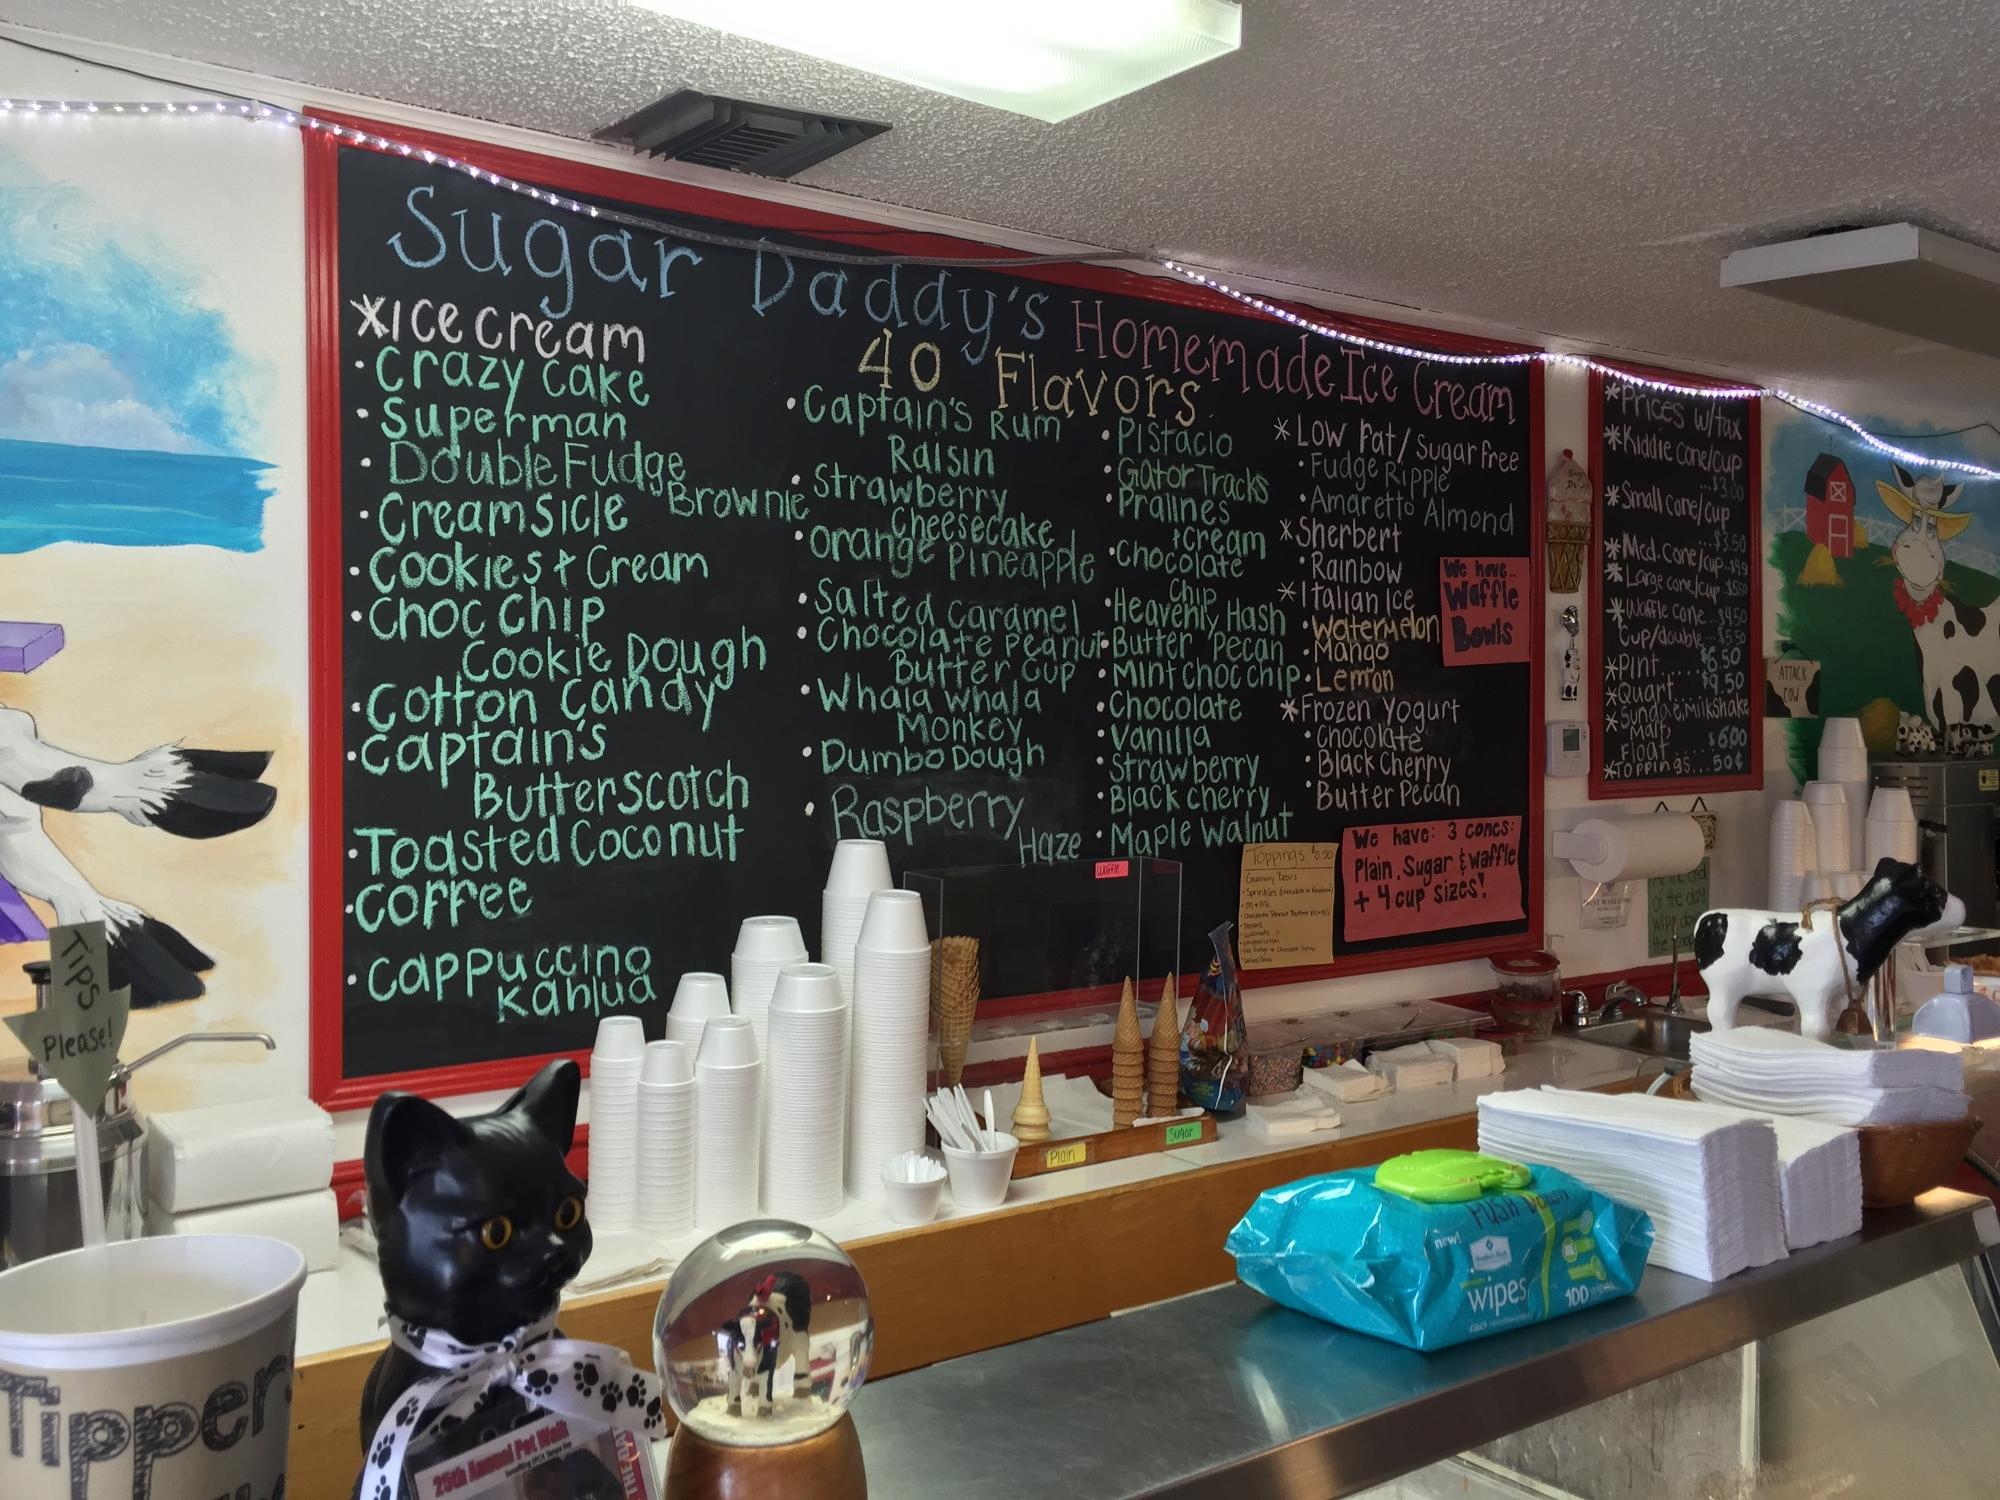 Sugar Daddy's Homemade Ice Cream
40 Flavors
*Ice cream
• Crazy Cake
• Superman
• Double Fudge
Brownie
• Creamsicle
• Cookies & Cream
• Choc Chip
Cookie Dough
• Cotton Candy
• Captain's
Butterscotch
• Toasted Coconut
• Coffee
• Cappuccino
Kahlua
• Captain's Rum
Raisin
• Strawberry
Cheesecake
• Orange Pineapple
• Salted Caramel
• Chocolate Peanut
Butter Cup
• Whala Whala
Monkey
• Dumbo Dough
• Raspberry
Haze
• Pistacio
• Gator Tracks
• Pralines
+ cream
• Chocolate
Chip
• Heavenly Hash
• Butter Pecan
• Mint Choc chip
• Chocolate
• Vanilla
• Strawberry
• Black cherry
• Maple Walnut
* Low Fat/Sugar free
• Fudge Ripple
• Amaretto Almond
* Sherbert
• Rainbow
* Italian Ice
• Watermelon
• Mango
• Lemon
* Frozen Yogurt
• Chocolate
• Black Cherry
• Butter Pecan
We have...
Waffle
Bowls
We have: 3 cones:
Plain, Sugar & waffle
+ 4 cup sizes!
Toppings $0.50
• Gummy Bears
• Sprinkles (chocolate or Rainbow)
• M+M's
• Chocolate Peanut Butter M+M's
• Pecans
• Walnuts
• Whipped cream
• Hot Fudge or Chocolate Syrup
*Prices w/tax
*Kiddie cone/cup
...$3.00
*Small cone/cup
...$3.50
*Med. cone/cup..$4.50
*Large cone/cup.$5.50
*Waffle cone...$4.50
Cup/double...$5.50
*Pint......$6.50
*Quart.....$9.50
*Sundae, Milkshake
Malt,
Float.....$6.00
*Toppings...50¢
ATTACK
COW
At the end
of the day
wipe down
the scoop
Waffle
Plain
Sugar
TIPS
Please!
Tipper
25th Annual Pet Walk
PUSH DOWN
new!
wipes
100